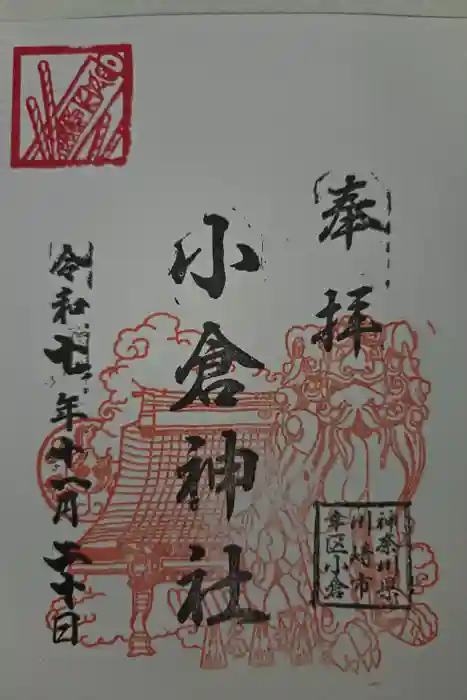 奉拝
神奈川県
川崎市
幸区小倉
小倉神社
令和七年十一月二十日